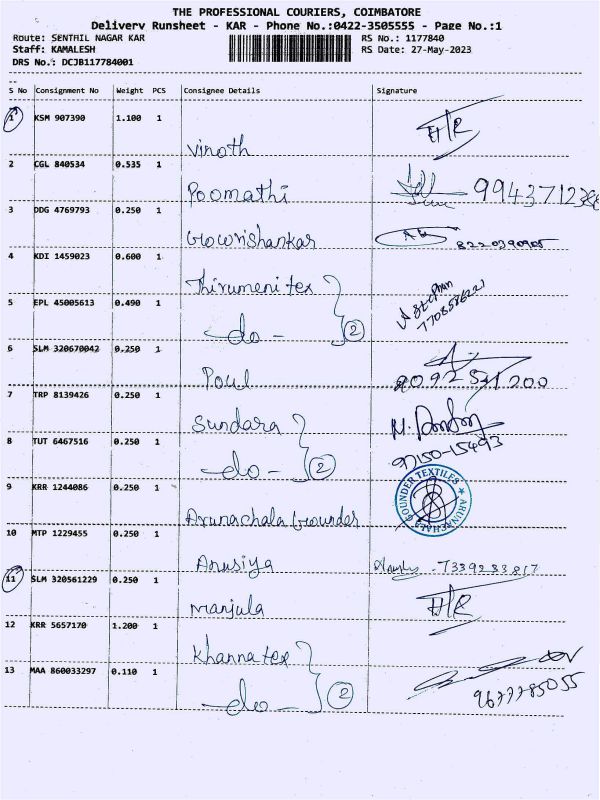 THE PROFESSIONAL COURIERS, COIMBATORE
Delivery Runsheet - KAR - Phone No.:0422-3505555 - Page No.:1
Route: SENTHIL NAGAR KAR RS No.: 1177840
Staff: KAMALESH RS Date: 27-May-2023
DRS No.: DCJB117784001
S No Consignment No Weight PCS Consignee Details Signature
1 KSM 907390 1.100 1
Vinoth
2 CGL 840534 0.535 1
Poomathi 9943712
3 DDG 4769793 0.250 1
Gowrishankar 8220390905
4 KDI 1459023 0.600 1
Thirumeni tex
5 EPL 45005613 0.490 1
- do - 2
6 SLM 320670042 0.250 1
Poul
7 TRP 8139426 0.250 1
Sundara
8 TUT 6467516 0.250 1
- do - 2 97150-15493
9 KRR 1244086 0.250 1
Arunachala Grounder GOUNDER TEXTILES ★ ARUNACHALA
10 MTP 1229455 0.250 1
Anusiya -7339283817
11 SLM 320561229 0.250 1
Manjula
12 KRR 5657170 1.200 1
Khanna tex
13 MAA 860033297 0.110 1
- do - 2 9677785055